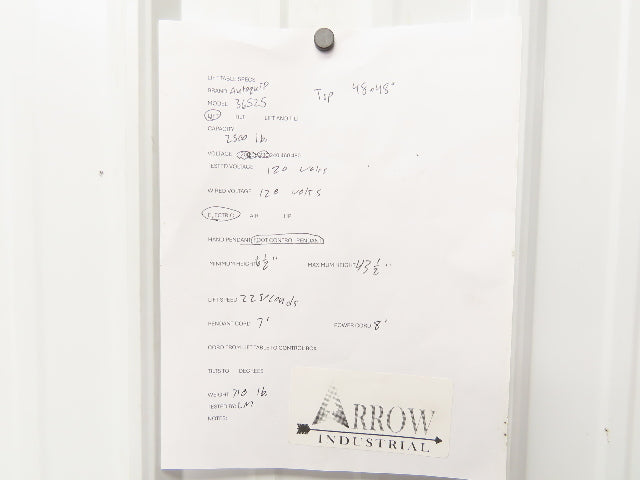 LIFT TABLE SPECS
BRAND Autoquip Top 48x48"
MODEL 36S25
LIFT TILT LIFT AND TILT
CAPACITY
2500 lb
VOLTAGE
TESTED VOLTAGE 120 volts
WIRED VOLTAGE 120 volts
ELECTRIC AIR
HAND PENDANT FOOT CONTROL PENDANT
MINIMUM HEIGHT 6 1/2" MAXIMUM HEIGHT 43 1/2"
LIFT SPEED 22 Seconds
PENDANT CORD 7' POWER CORD 8'
CORD FROM LIFT TABLE TO CONTROL BOX
TILTS TO DEGREES
WEIGHT 710 lb
TESTED BY
NOTES:
ARROW
INDUSTRIAL